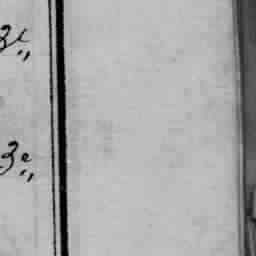 3e„
3e„